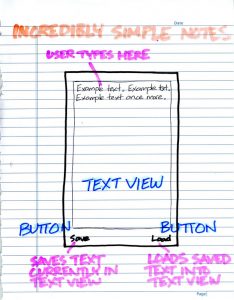 Date
INCREDIBLY SIMPLE NOTES
USER TYPES HERE
Example text. Example txt.
Example text once more.
TEXT VIEW
BUTTON BUTTON
Save Load
SAVES TEXT
CURRENTLY IN
TEXT VIEW
LOADS SAVED
TEXT INTO
TEXT VIEW
Page